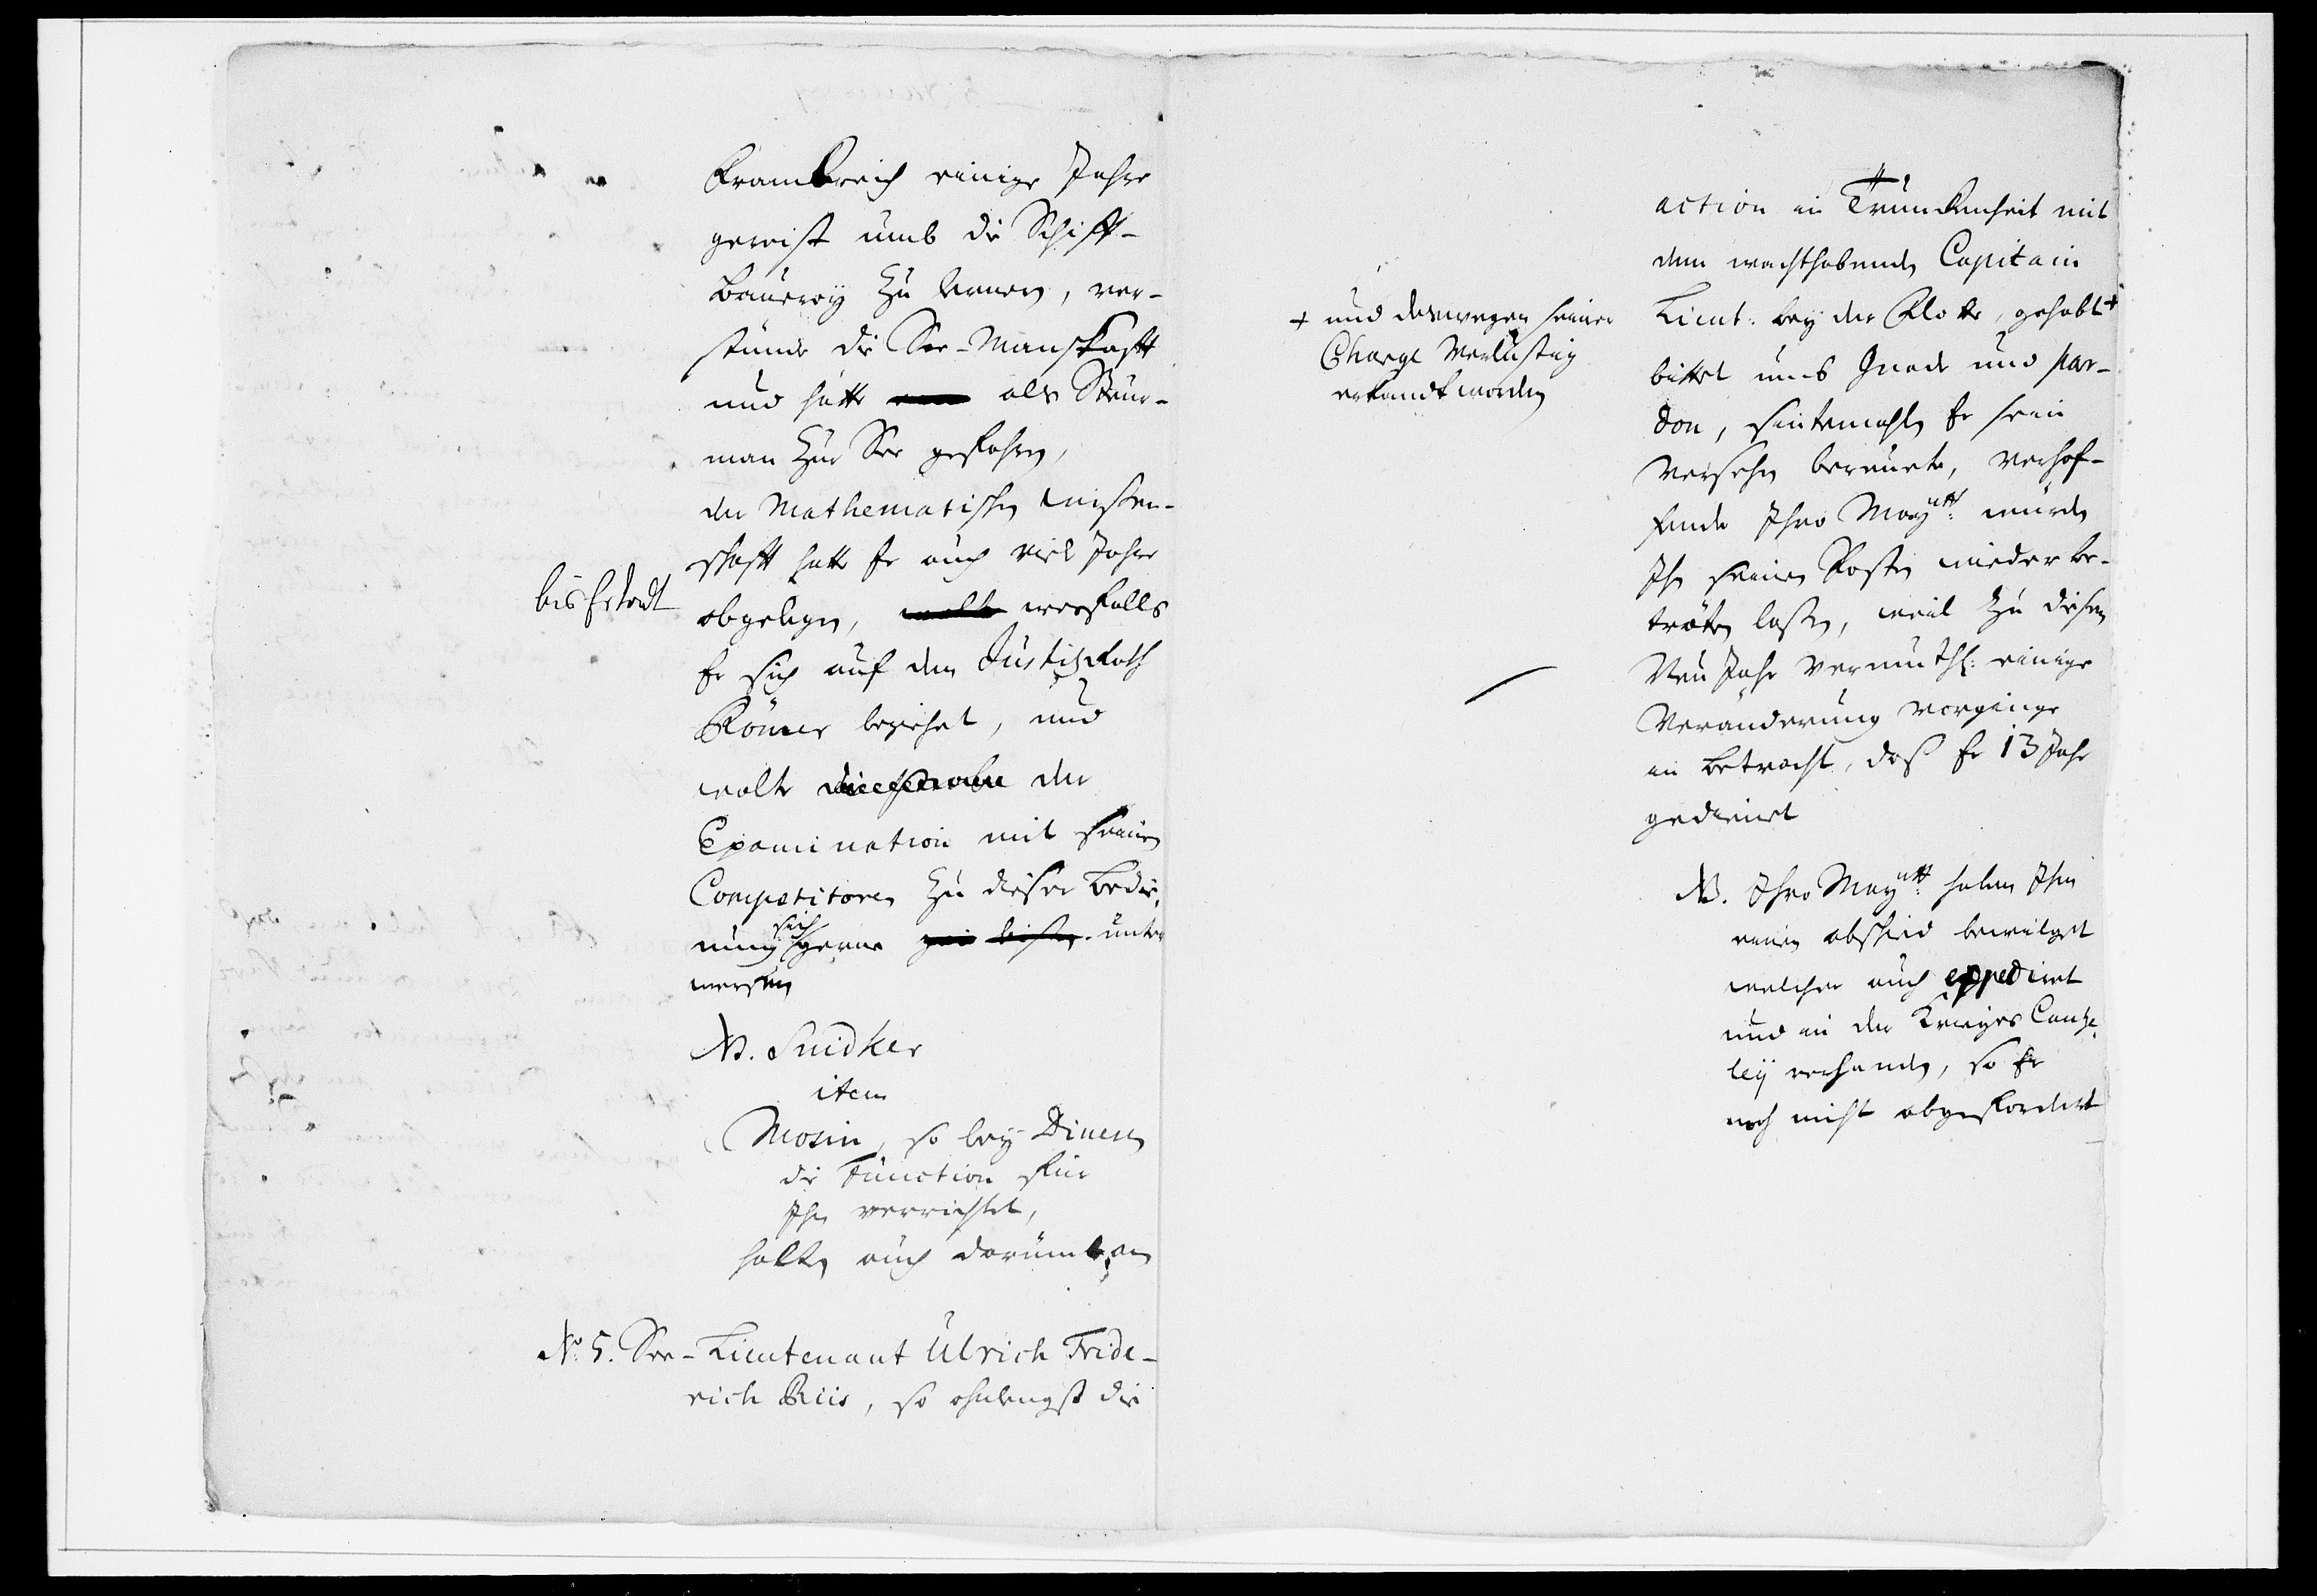 Franckreich einige Jahre
gereist umb die Schiff-
bauerey zu lernen, ver-
stünde die See-Manschafft
und hätte als Steur-
man zur See gefahren,
der Mathematischen wißen-
schafft hatte Er auch viel Jahre
obgelegen, weßfalls
Er sich auf den Justiz Rath
Römer beziehet, und
wolte der
Examination mit seinen
Competitoren zu dieser bedie-
nung sich gerne unter
werffen
NB. Snidker
item
Mosin, so bey Dinesen
die Function für
Ihn verrichtet,
halten auch darumb an
No. 5. See-Lieutenant Ulrich Fride-
rich Riis, so ohnlengst die
+ und deswegen seiner
Charge verlustig
erkandt worden
action in Trunckenheit mit
dem wachthabenden Capitain
Lieut: bey der Flotte, gehabt +
bittet umb Gnade und par-
don, sintemahlen Er sein
Versehen bereuete, verhof-
fende Ihro Maytt: würden
Ihn seinen Posten wieder be-
träten laßen, weil zu diesen
Neu Jahr vermuthl: einige
Veränderung vorginge
in betracht, daß Er 13 Jahr
gedienet
NB. Ihro Maytt: haben Ihm
einen abschied bewilget
welcher auch expediret
und in der Krieges Cantze-
ley verhanden, so Er
noch nicht abgefordert